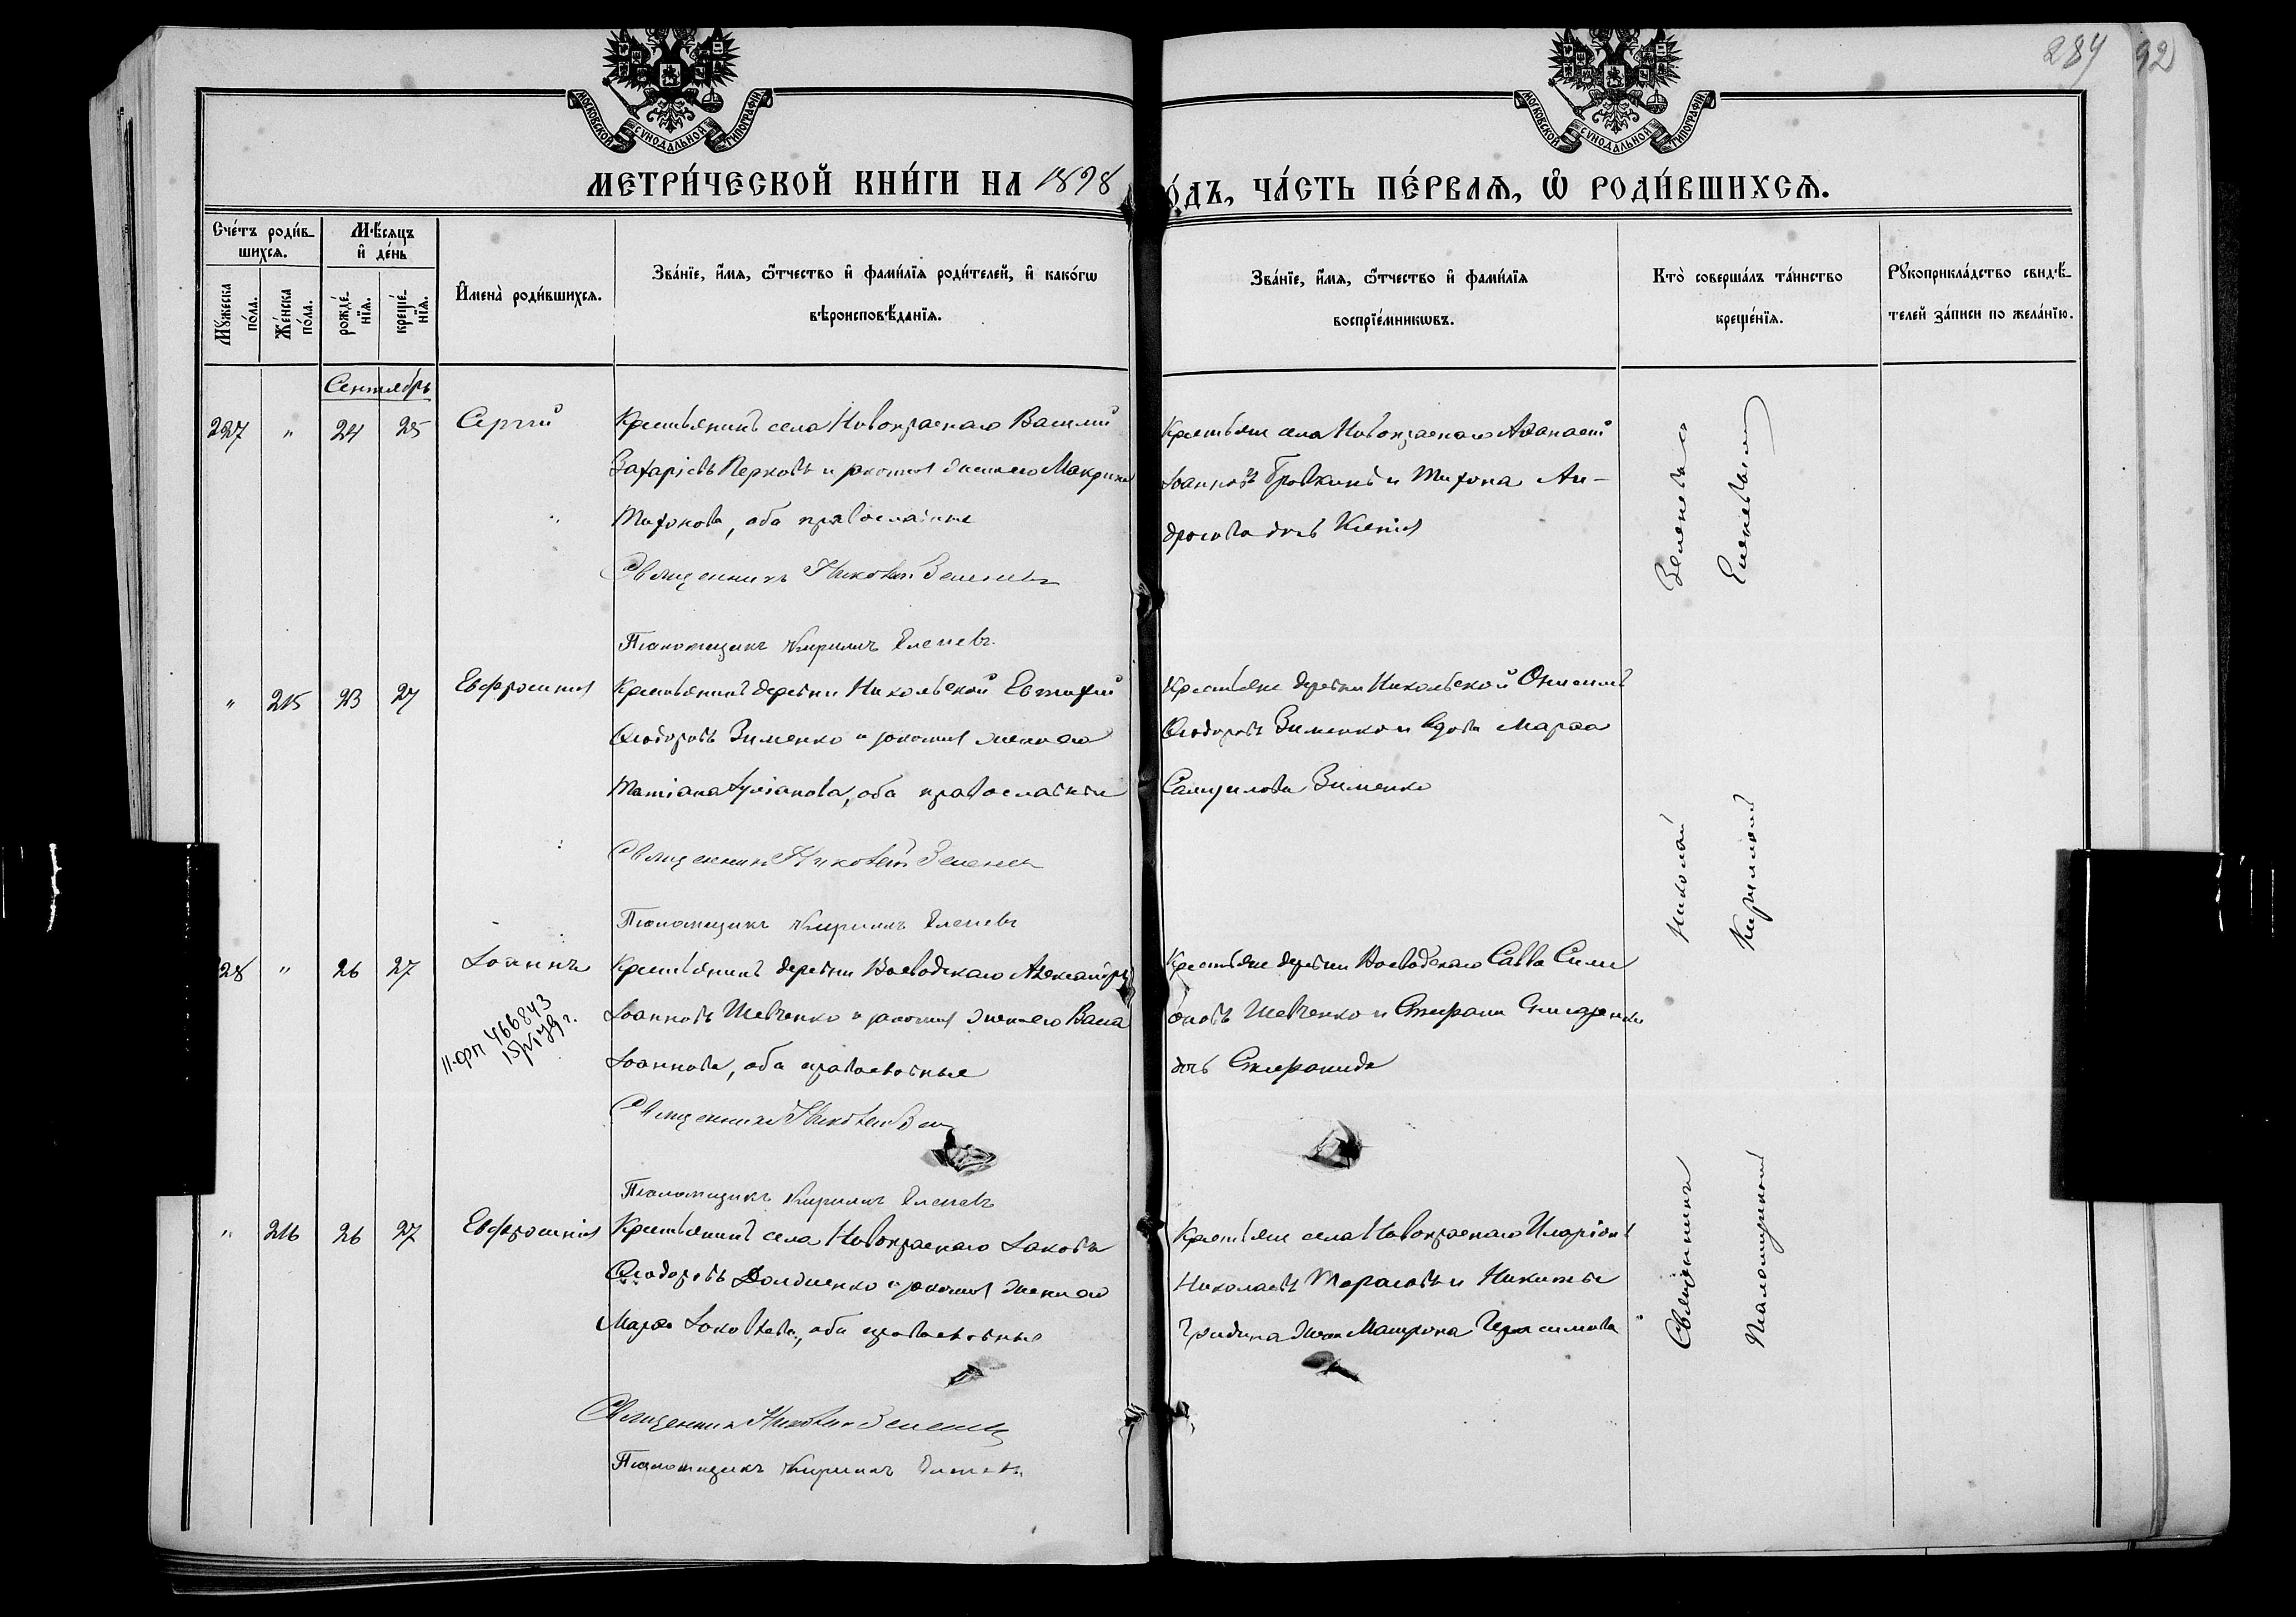 284 92
МОСКОВСКОЙ СѴНОДАЛЬНОЙ ТИПОГРАФІИ
МОСКОВСКОЙ СѴНОДАЛЬНОЙ ТИПОГРАФІИ
МЕТРИ́ЧЕСКОЙ КНИ́ГИ НА 1898
О́ДЪ, ЧА́СТЬ ПЕ́РВАѦ, Ѡ҆ РОДИ́ВШИХСѦ.
Сче́тъ роди́в-
шихсѧ.
Мѣ́сѧцъ
и҆ де́нь
Мꙋ́жеска по́ла.
Же́нска по́ла.
рожде́-
нїѧ.
креще́-
нїѧ.
И҆мена̀ роди́вшихсѧ.
Зва́нїе, и҆́мѧ, ѻ҆́тчество и҆ фами́лїѧ роди́телей, и҆ како́гѡ
вѣроисповѣ́данїѧ.
Зва́нїе, и҆́мѧ, ѻ҆́тчество и҆ фами́лїѧ
воспрїе́мникѡвъ.
Кто̀ соверша́лъ та́инство
креще́нїѧ.
Рꙋкоприкла́дство свидѣ́-
телей за́писи по жела́нїю.
Сентябрь
227 " 24 25 Сергій
Крестьянинъ села Новокраснаго Василій
Захаріевъ и законная жена его Макрина
Тихонова, оба православные
Священникъ Николай Зеленевъ
Псаломщикъ Кириллъ Еленевъ
Крестьяне села Новокраснаго Аѳанасій
Іоанновъ и Тихона Ан-
дросова дочь Ксенія
" 215 23 27 Евфросинія
Крестьянинъ деревни Никольской Евтихій
Ѳеодоровъ Зименко и законная жена его
Татіана Іуліанова, оба православные
Священникъ Николай Зеленевъ
Псаломщикъ Кириллъ Еленевъ
Крестьяне деревни Никольской Онисимъ
Ѳеодоровъ Зименко и вдова Марѳа
Самуилова Зименко
228 " 26 27 Іоаннъ
II-ФП 466843
Крестьянинъ деревни Воеводскаго Александръ
Іоанновъ Шевченко и законная жена его Васса
Іоаннова, оба православные
Священникъ Николай
Псаломщикъ Кириллъ Еленевъ
Крестьяне деревни Воеводскаго Савва Симе
оновъ Шевченко и
дочь Стефанида
" 216 26 27 Евфросинія
Крестьянинъ села Новокраснаго Іаковъ
Ѳеодоровъ Долженко и законная жена его
Марѳа Іаковлева, оба православные
Священникъ Николай Зеленевъ
Псаломщикъ Кириллъ Еленевъ
Крестьяне села Новокраснаго Иларіонъ
Николаевъ Тарасовъ и Никиты
жена Матрона Герасимова
Священникъ Николай Зеленевъ
Псаломщикъ Кириллъ Еленевъ